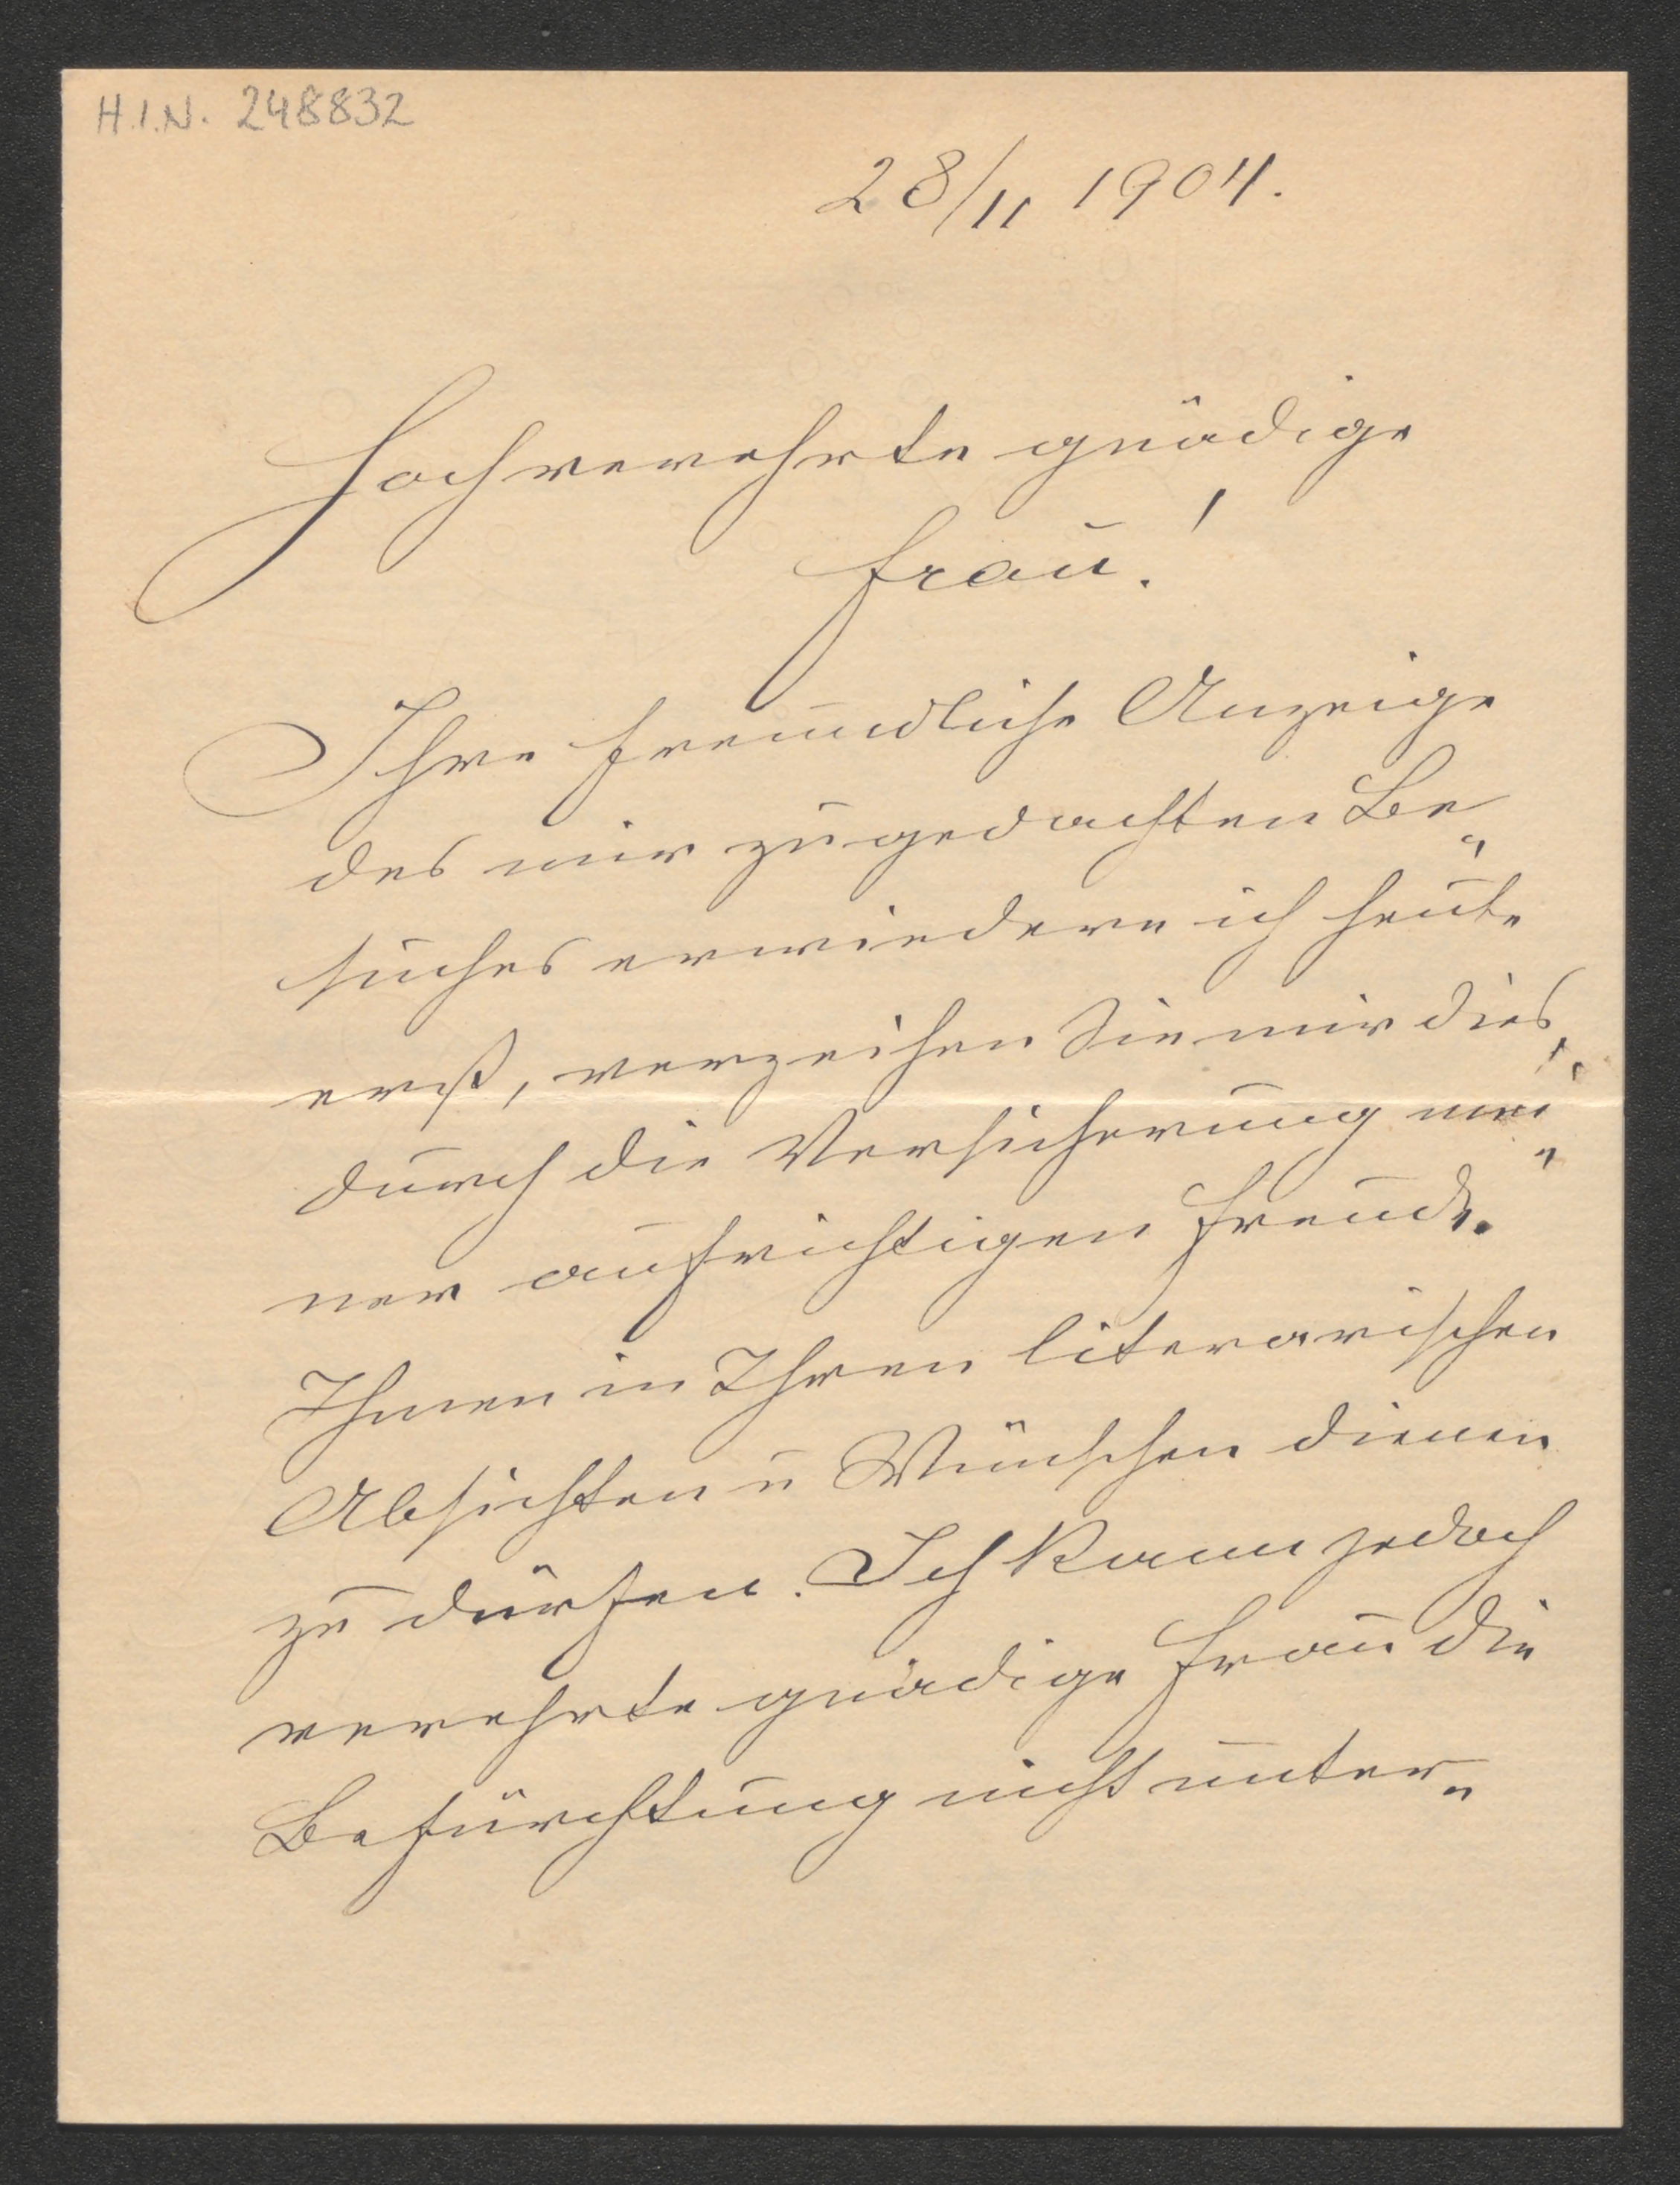 H.I.N. 248832
28/11 1904.
Hochverehrte gnädige
Frau!
Ihre freundliche Anzeige
des mir zugedachten Be„
suches erwiedere ich heute
erst, verzeihen Sie mir dies
durch die Versicherung mei„
ner aufrichtigen Freude
Ihnen in Ihren literarischen
Absichten u Wünschen dienen
zu dürfen. Ich kann jedoch
verehrte gnädige Frau die
Befürchtung nicht unter„